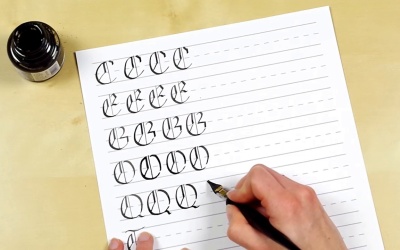 C C C C
E E E E
G G G G
O O O O
Q Q Q